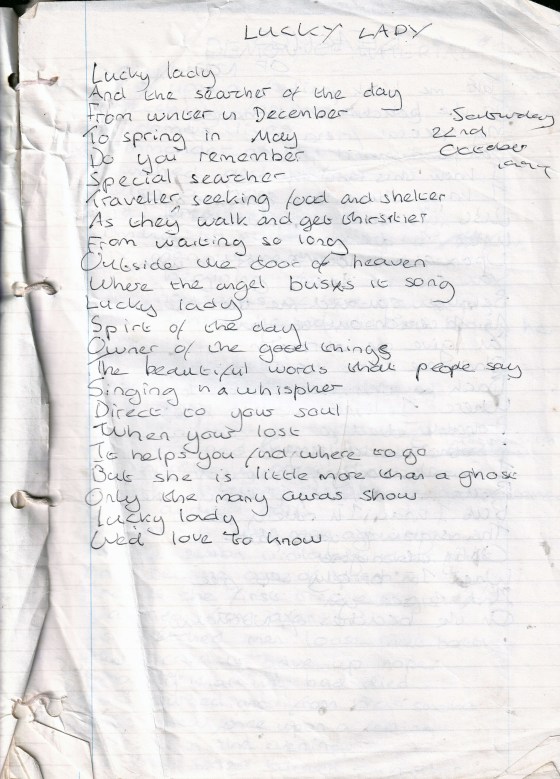 LUCKY LADY
Lucky lady
And the searcher of the day
From winter in December
To spring in May
Do you remember
Special searcher
Traveller seeking food and shelter
As they walk and get thirstier
From waiting so long
Outside the door of heaven
Where the angel busks it song
Lucky lady
Spirit of the day
Owner of the good things
The beautiful words that people say
Singing in a whispher
Direct to your soul
When your lost
It helps you find where to go
But she is little more than a ghost
Only the many auras show
Lucky lady
We'd love to know
Saturday
22nd
October